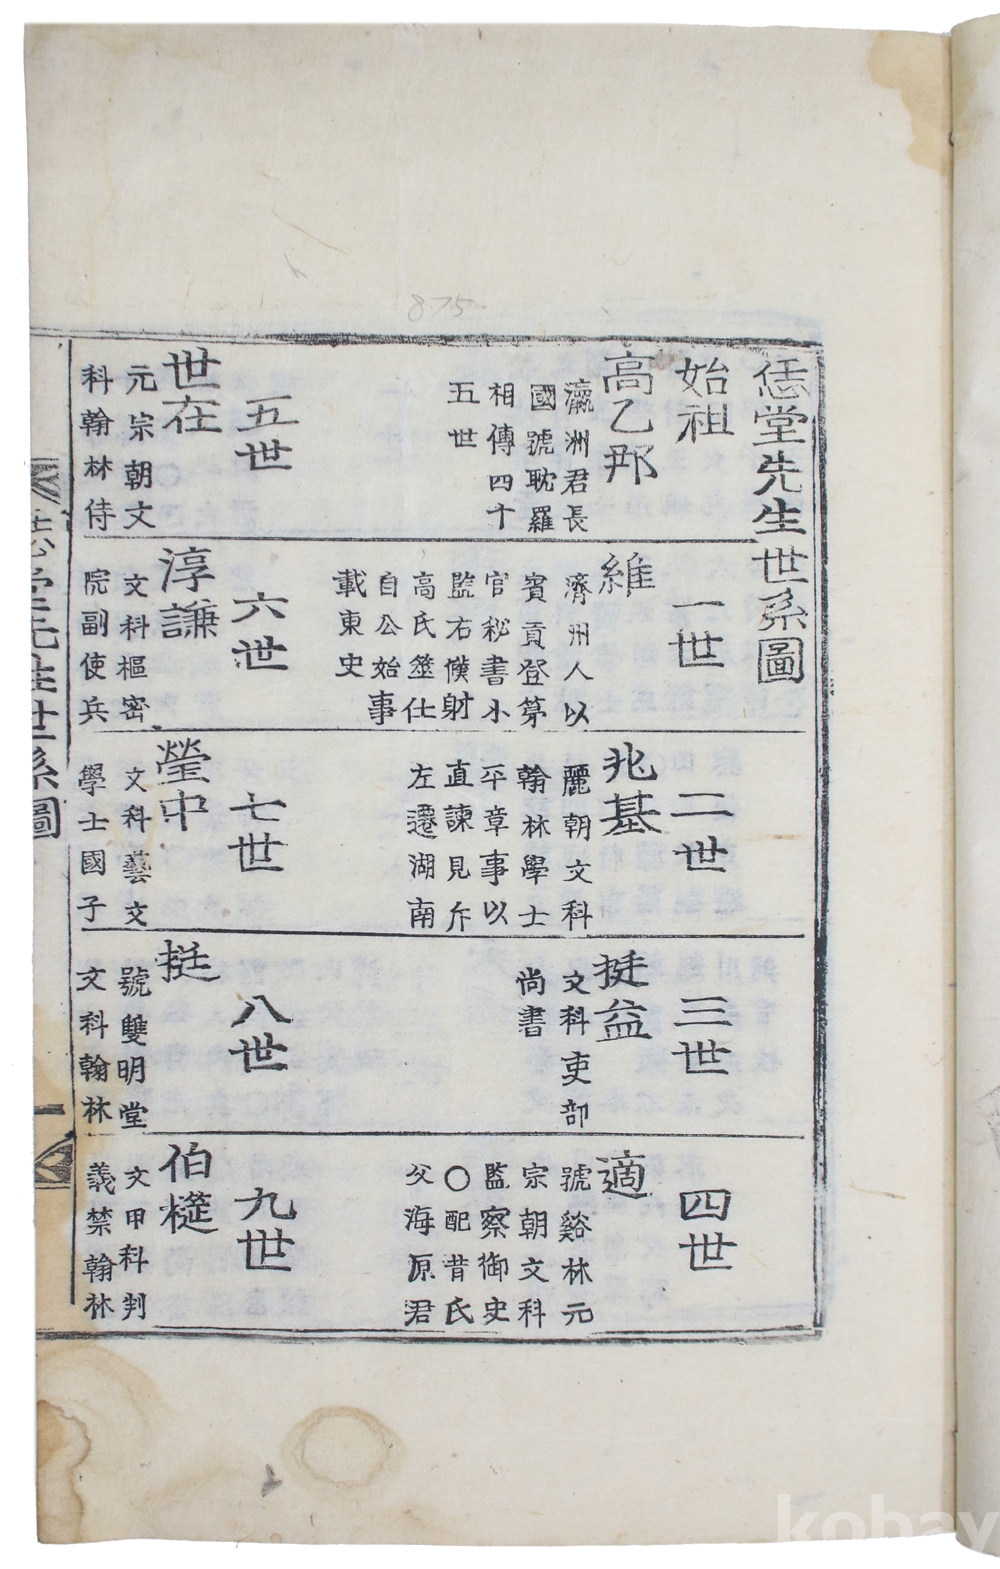 875
恁堂先生世系圖
始祖
高乙那
瀛洲君長
國號耽羅
相傳四十
五世
一世
維
濟州人以
賓貢登第
官秘書小
監右僕射
高氏筮仕
自公始事
載東史
二世
兆基
麗朝文科
翰林學士
平章事以
直諫見斥
左遷湖南
三世
挺益
文科吏部
尚書
四世
適
號谿林元
宗朝文科
監察御史
○配昔氏
父海原君
五世
世在
元宗朝文
科翰林侍
六世
淳謙
文科樞密
院副使兵
七世
瑩中
文科藝文
學士國子
八世
挺
號雙明堂
文科翰林
九世
伯𣖔
文甲科判
義禁翰林
先生世系圖
一
kobay